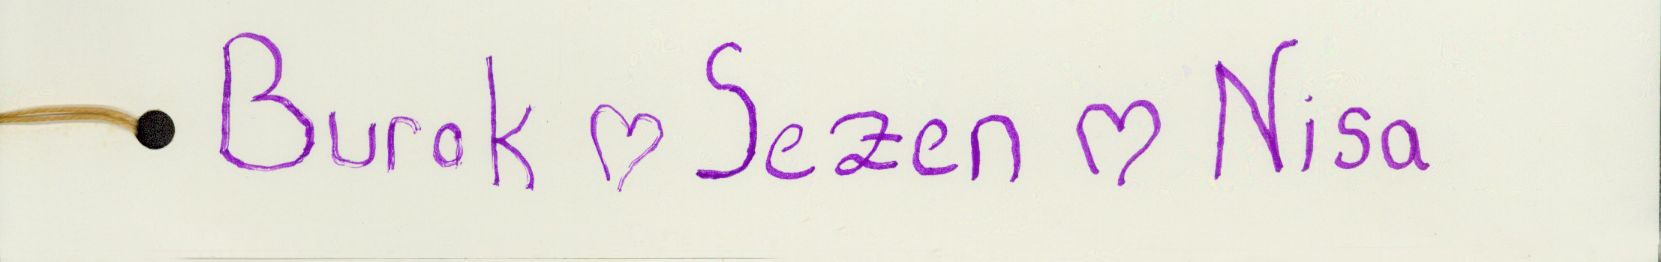 Burak ♡ Sezen ♡ Nisa